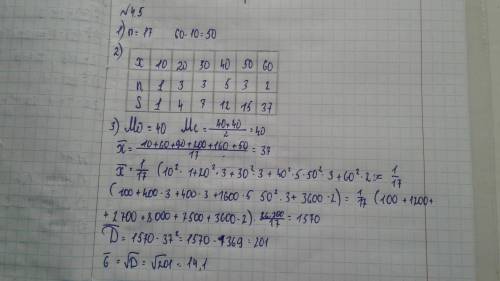 №45
1) n = 17  60-10=50
2)
x 10 20 30 40 50 60
n 1 3 3 5 3 2
S 1 4 7 12 15 37
3) Mo = 40  Mc = (40+40)/2 = 40
x̄ = (10+60+90+200+150+50)/17 = 37
x̄ = 1/17 (10²·1+20²·3+30²·3+40²·5·50²·3+60²·2 = 1/17
(100+400·3+400·3+1600·5 50²·3+3600·2) = 1/17 (100+1200+
+2700+8000+7500+3600·2) 26700/17 = 1570
D̄ = 1570-37² = 1570-1369 = 201
б = √D = √201 = 14,1